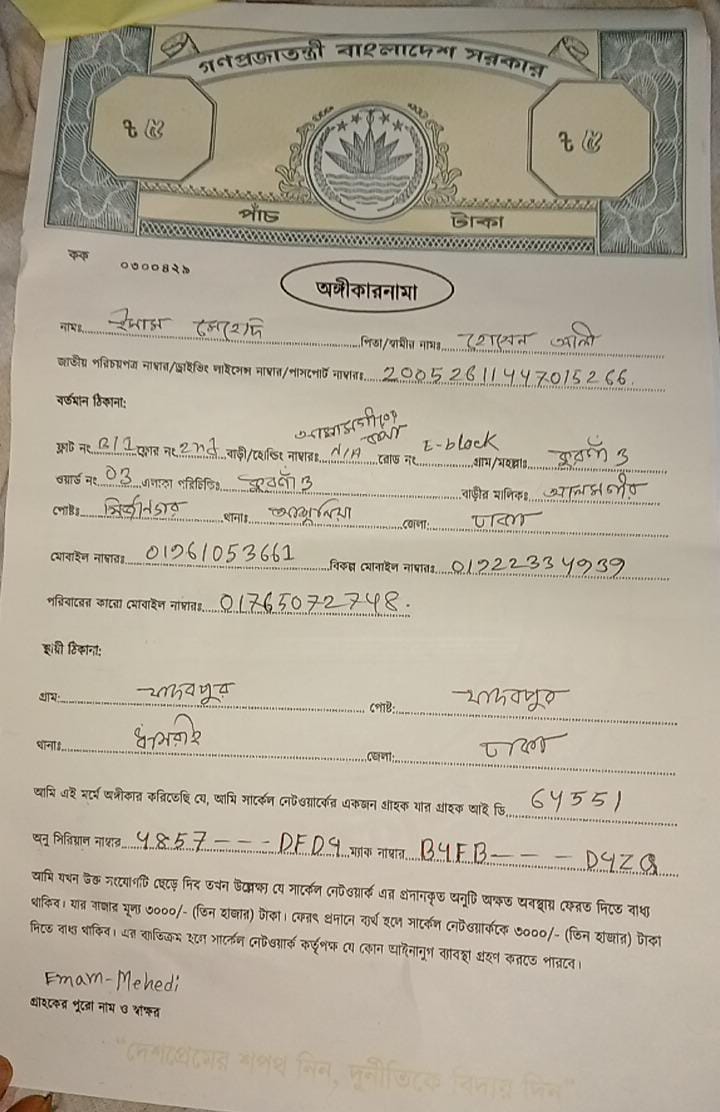 গণপ্রজাতন্ত্রী বাংলাদেশ সরকার
৳ ৫ ৳ ৫
পাঁচ টাকা
কক ০৩০০৪২৯
অঙ্গীকারনামা
নামঃ ইমাম মেহেদি পিতা/স্বামীর নামঃ হোসেন আলী
জাতীয় পরিচয়পত্র নাম্বার/ড্রাইভিং লাইসেন্স নাম্বার/পাসপোর্ট নাম্বারঃ 20052611447015266
বর্তমান ঠিকানা:
ফ্ল্যাট নং B/1 ফ্লোর নং 2nd বাড়ী/হোল্ডিং নাম্বারঃ N/A রোড নং E-block গ্রাম/মহল্লাঃ কুরগাঁ ৩
ওয়ার্ড নং 03 এলাকা পরিচিতিঃ কুরগাঁ ৩ বাড়ীর মালিকঃ আলমগীর
পোষ্টঃ থানাঃ আশুলিয়া জেলা: ঢাকা
মোবাইল নাম্বারঃ 01961053661 বিকল্প মোবাইল নাম্বারঃ 01922334939
পরিবারের কারো মোবাইল নাম্বারঃ 01765072748.
স্থায়ী ঠিকানা:
গ্রাম: যাদবপুর পোষ্ট: যাদবপুর
থানাঃ ধামরাই জেলা: ঢাকা
আমি এই মর্মে অঙ্গীকার করিতেছি যে, আমি সার্কেল নেটওয়ার্কের একজন গ্রাহক যার গ্রাহক আই ডি 64551
অনু সিরিয়াল নাম্বার 4857---DFD9 ম্যাক নাম্বার B4FB---D4ZQ
আমি যখন উক্ত সংযোগটি ছেড়ে দিব তখন উল্লেখ্য যে সার্কেল নেটওয়ার্ক এর প্রদানকৃত অনুটি অক্ষত অবস্থায় ফেরত দিতে বাধ্য
থাকিব। যার বাজার মূল্য ৩০০০/- (তিন হাজার) টাকা। ফেরৎ প্রদানে ব্যর্থ হলে সার্কেল নেটওয়ার্ককে ৩০০০/- (তিন হাজার) টাকা
দিতে বাধ্য থাকিব। এর ব্যতিক্রম হলে সার্কেল নেটওয়ার্ক কর্তৃপক্ষ যে কোন আইনানুগ ব্যাবস্থা গ্রহণ করতে পারবে।
Emam-Mehedi
গ্রাহকের পুরো নাম ও স্বাক্ষর
"দেশপ্রেমের শপথ নিন, দুর্নীতিকে বিদায় দিন"